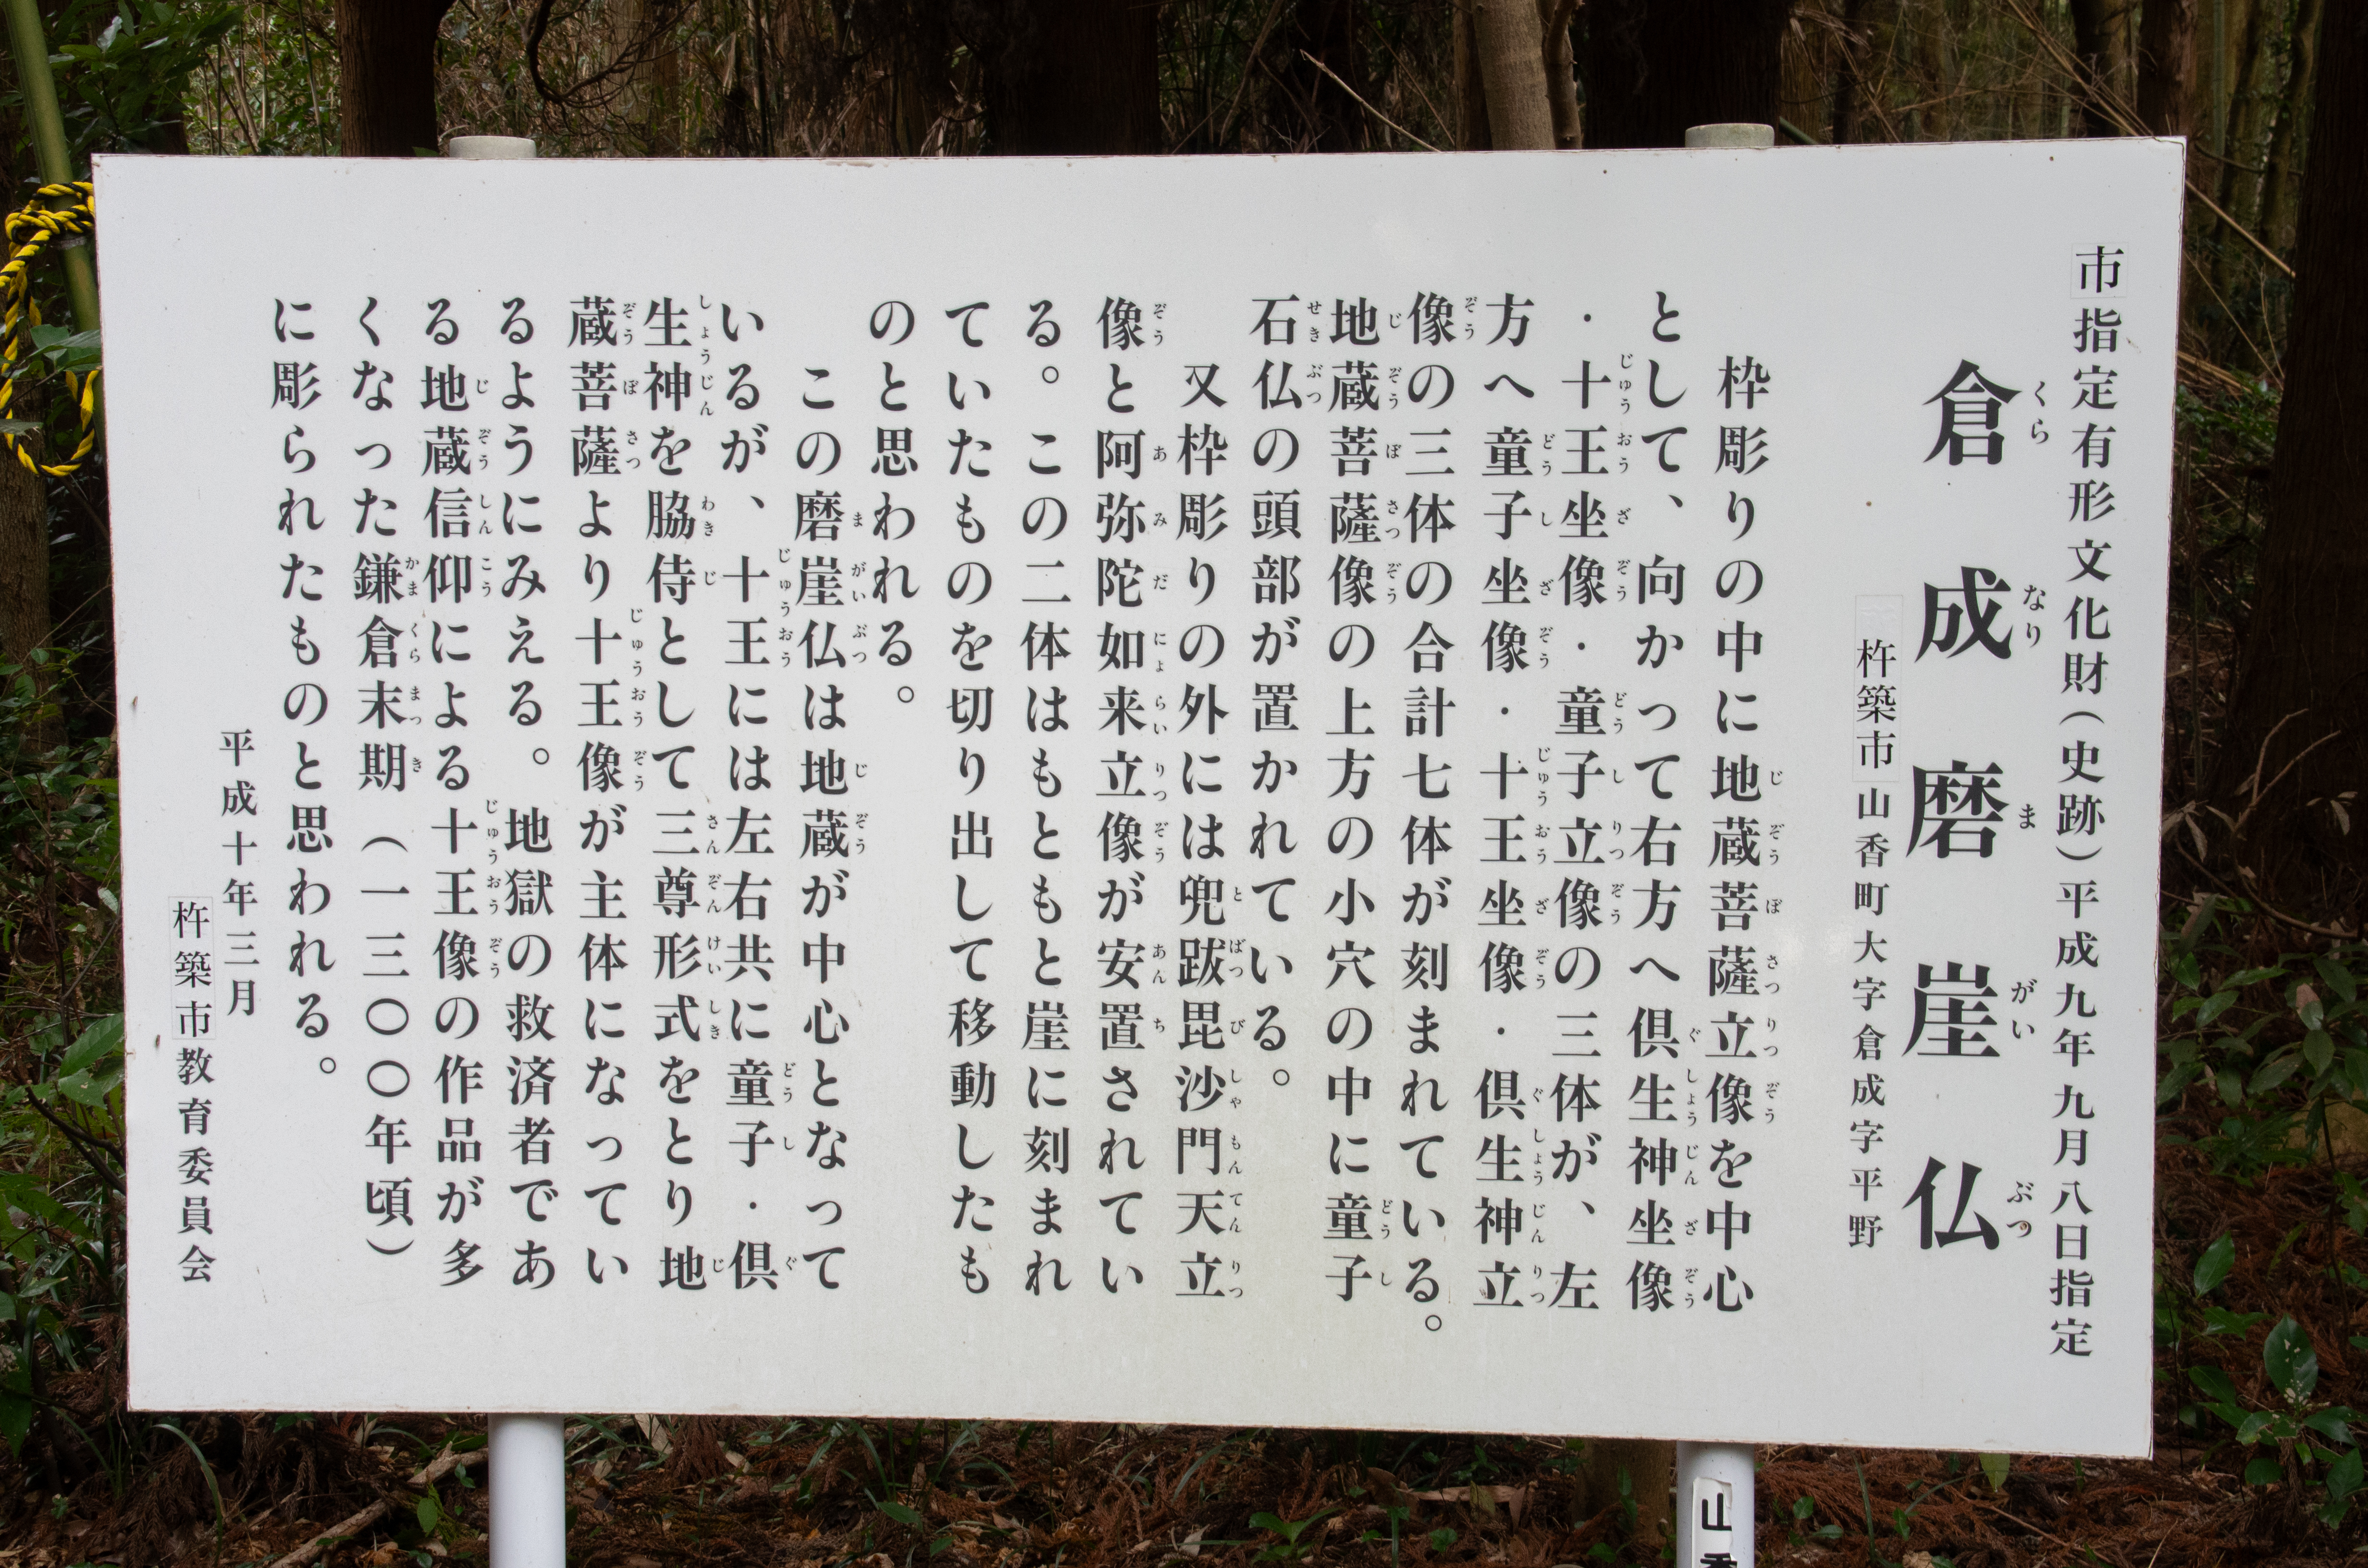 市指定有形文化財（史跡）平成九年九月八日指定
倉成磨崖仏
くらなりまがいぶつ
杵築市山香町大字倉成字平野
枠彫りの中に地蔵菩薩立像を中心
として、向かって右方へ倶生神坐像
・十王坐像・童子立像の三体が、左
方へ童子坐像・十王坐像・倶生神立
像の三体の合計七体が刻まれている。
地蔵菩薩像の上方の小穴の中に童子
石仏の頭部が置かれている。
又枠彫りの外には兜跋毘沙門天立
像と阿弥陀如来立像が安置されてい
る。この二体はもともと崖に刻まれ
ていたものを切り出して移動したも
のと思われる。
この磨崖仏は地蔵が中心となって
いるが、十王には左右共に童子・倶
生神を脇侍として三尊形式をとり地
蔵菩薩より十王像が主体になってい
るようにみえる。地獄の救済者であ
る地蔵信仰による十王像の作品が多
くなった鎌倉末期（一三〇〇年頃）
に彫られたものと思われる。
平成十年三月
杵築市教育委員会
山香